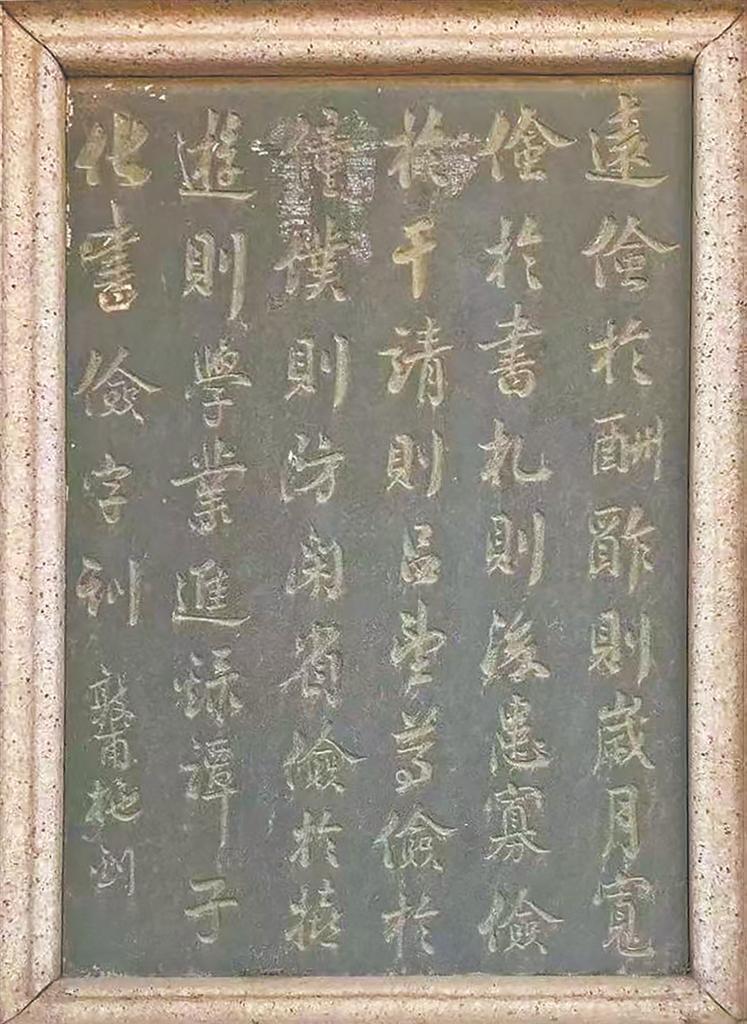 遠儉於酬酢則歲月寬
儉於書札則後患寡儉
於干請則品望尊儉於
僮僕則防閑省儉於嬉
遊則學業進録譚子
化書儉字